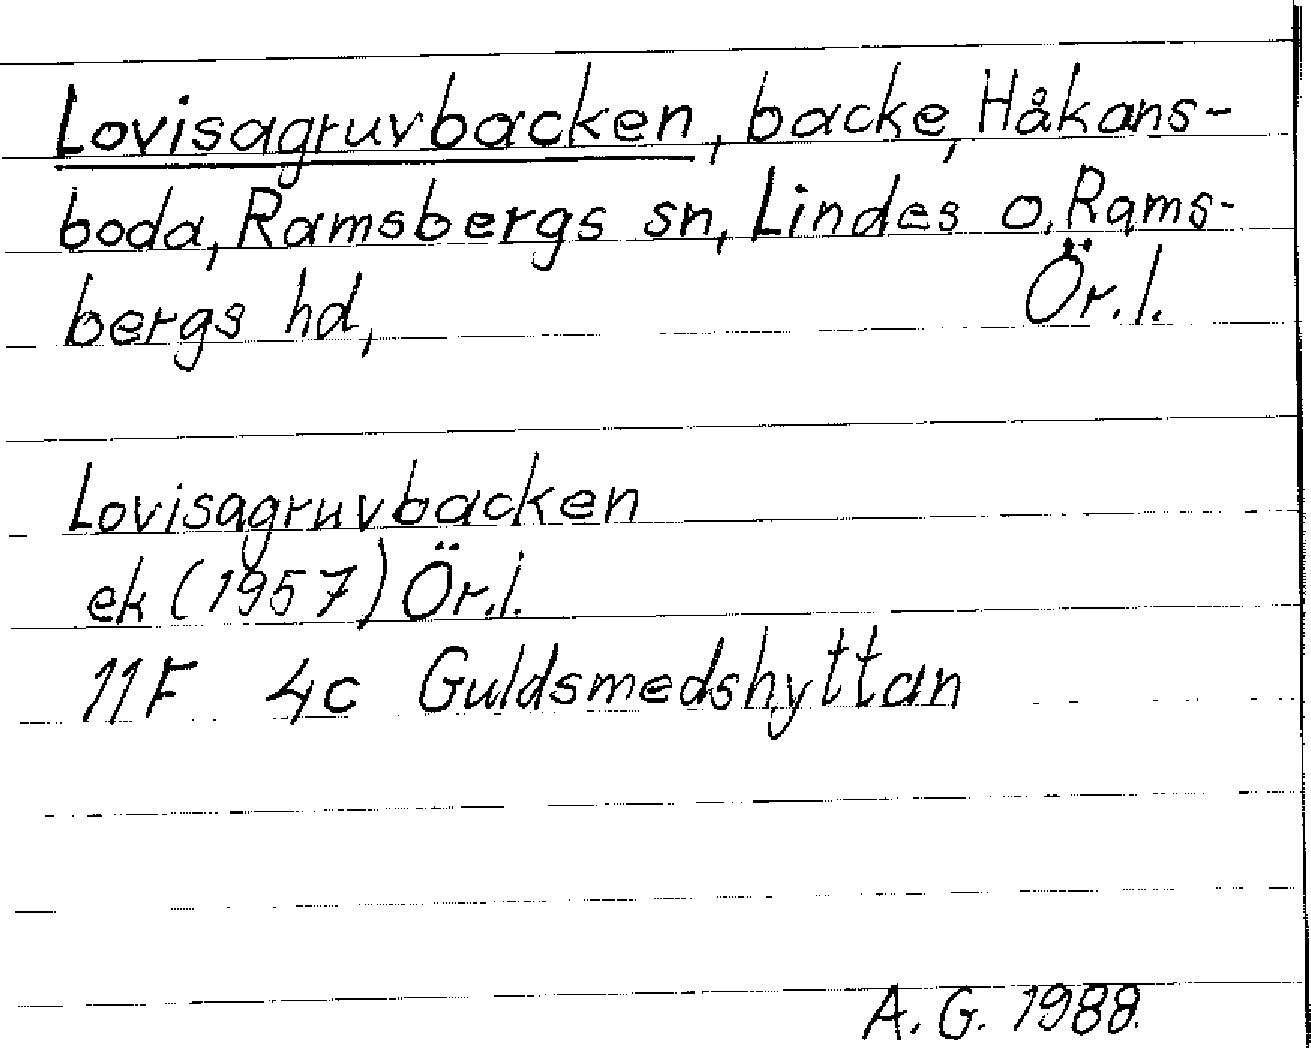 Lovisagruvbacken, backe, Håkans-
boda, Ramsbergs sn, Lindes o. Rams-
bergs hd, Ör.l.
Lovisagruvbacken
ek (1957) Ör.l.
11F 4c Guldsmedshyttan
A. G. 1988.